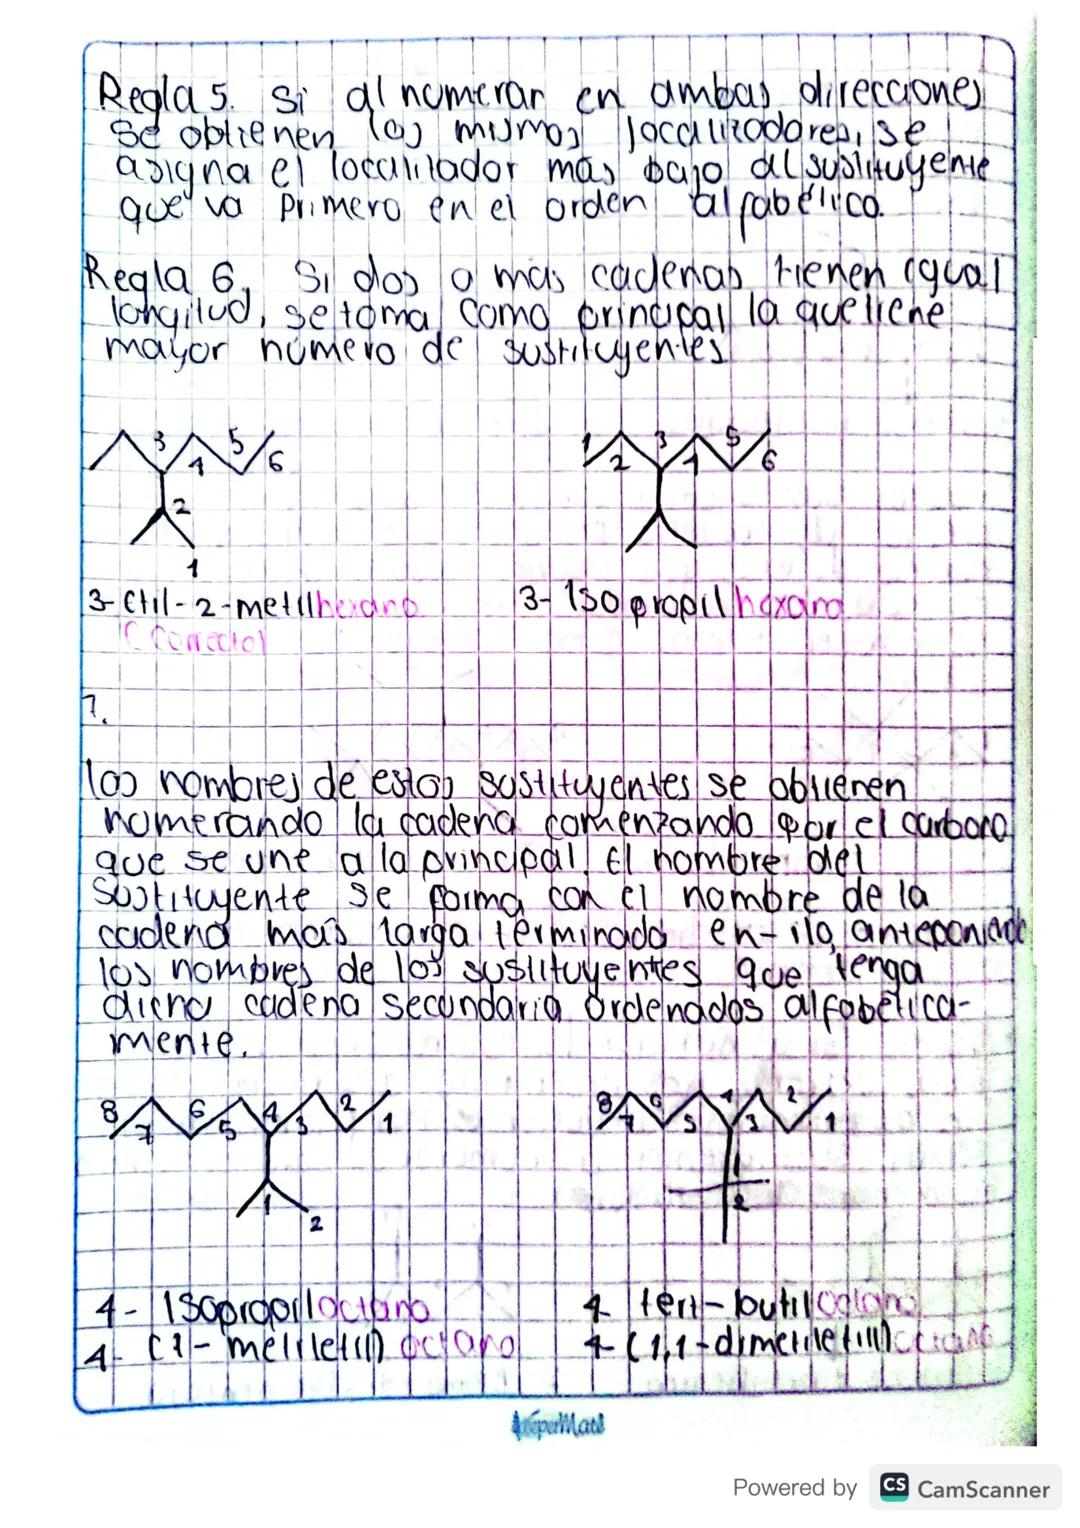 Regla 5. Si al numerar en ambas direcciones
se obtienen los mismos localizadores, se
asigna el localilador más bajo al sustituyente
que va primero en el orden alfabético.
Regla 6. Si dos o mas cadenas tienen igual
longitud, se toma como principal la que tiene
mayor número de sustituyentes
3 5
4 6
2
1
1 3 5
2 4 6
3-Etil-2-metilhexano
(Correcto)
3-Isopropilhexano
7.
los nombres de estos sustituyentes se obtienen
numerando la cadena comenzando por el carbono
que se une a la principal. El nombre del
sustituyente se forma con el nombre de la
cadena más larga terminada en-ilo, anteponiendo
los nombres de los sustituyentes que tenga
dicha cadena secundaria ordenados alfabética-
mente.
8 7 6 5 4 3 2 1
1 2
8 7 6 5 4 3 2 1
1
2
4-Isopropiloctano
4-(1-metiletil)octano
4 tert-butiloctano
4-(1,1-dimetiletil)octano
KeeperMate
Powered by CS CamScanner